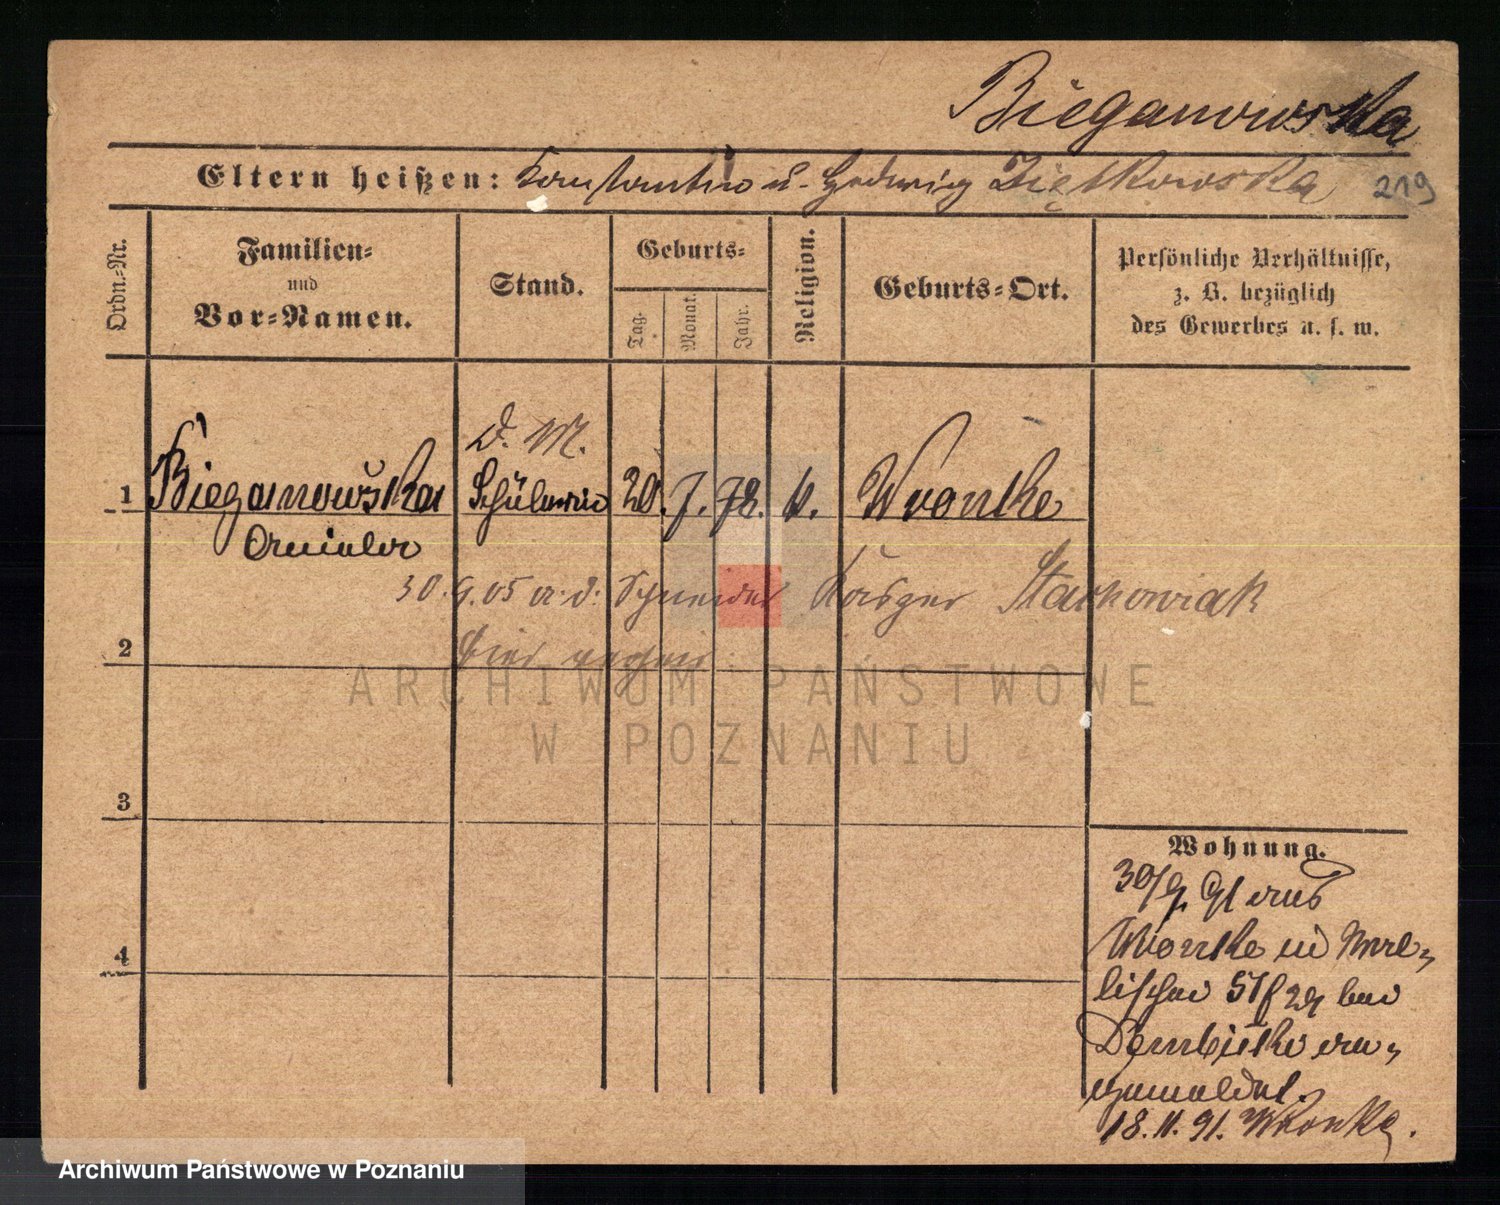 Bieganowska
Eltern heißen: Konstantin u. Hedwig Ziętkowska 219
Ordn.-Nr.
Familien-
und
Vor-Namen.
Stand.
Geburts-
Tag.
Monat.
Jahr.
Religion.
Geburts-Ort.
Persönliche Verhältnisse,
z. B. bezüglich
des Gewerbes u. s. w.
D. M.
1 Bieganowska Schülerin 20. 7. 78. k. Wronke
30.9.05 a. d. Schneider Kasper Stachowiak
hier
2
3
4
Wohnung.
30/9. 91 aus
Wronke in Wall-
lischei 57 bei
Dembitzki an-
gemeldet.
18.11.91. Wronke.
ARCHIWUM PAŃSTWOWE
W POZNANIU
Archiwum Państwowe w Poznaniu